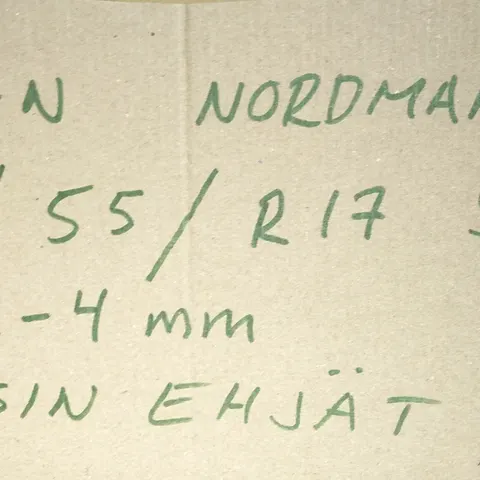 N NORDMA
55/R17
-4 mm
SIN EHJÄT